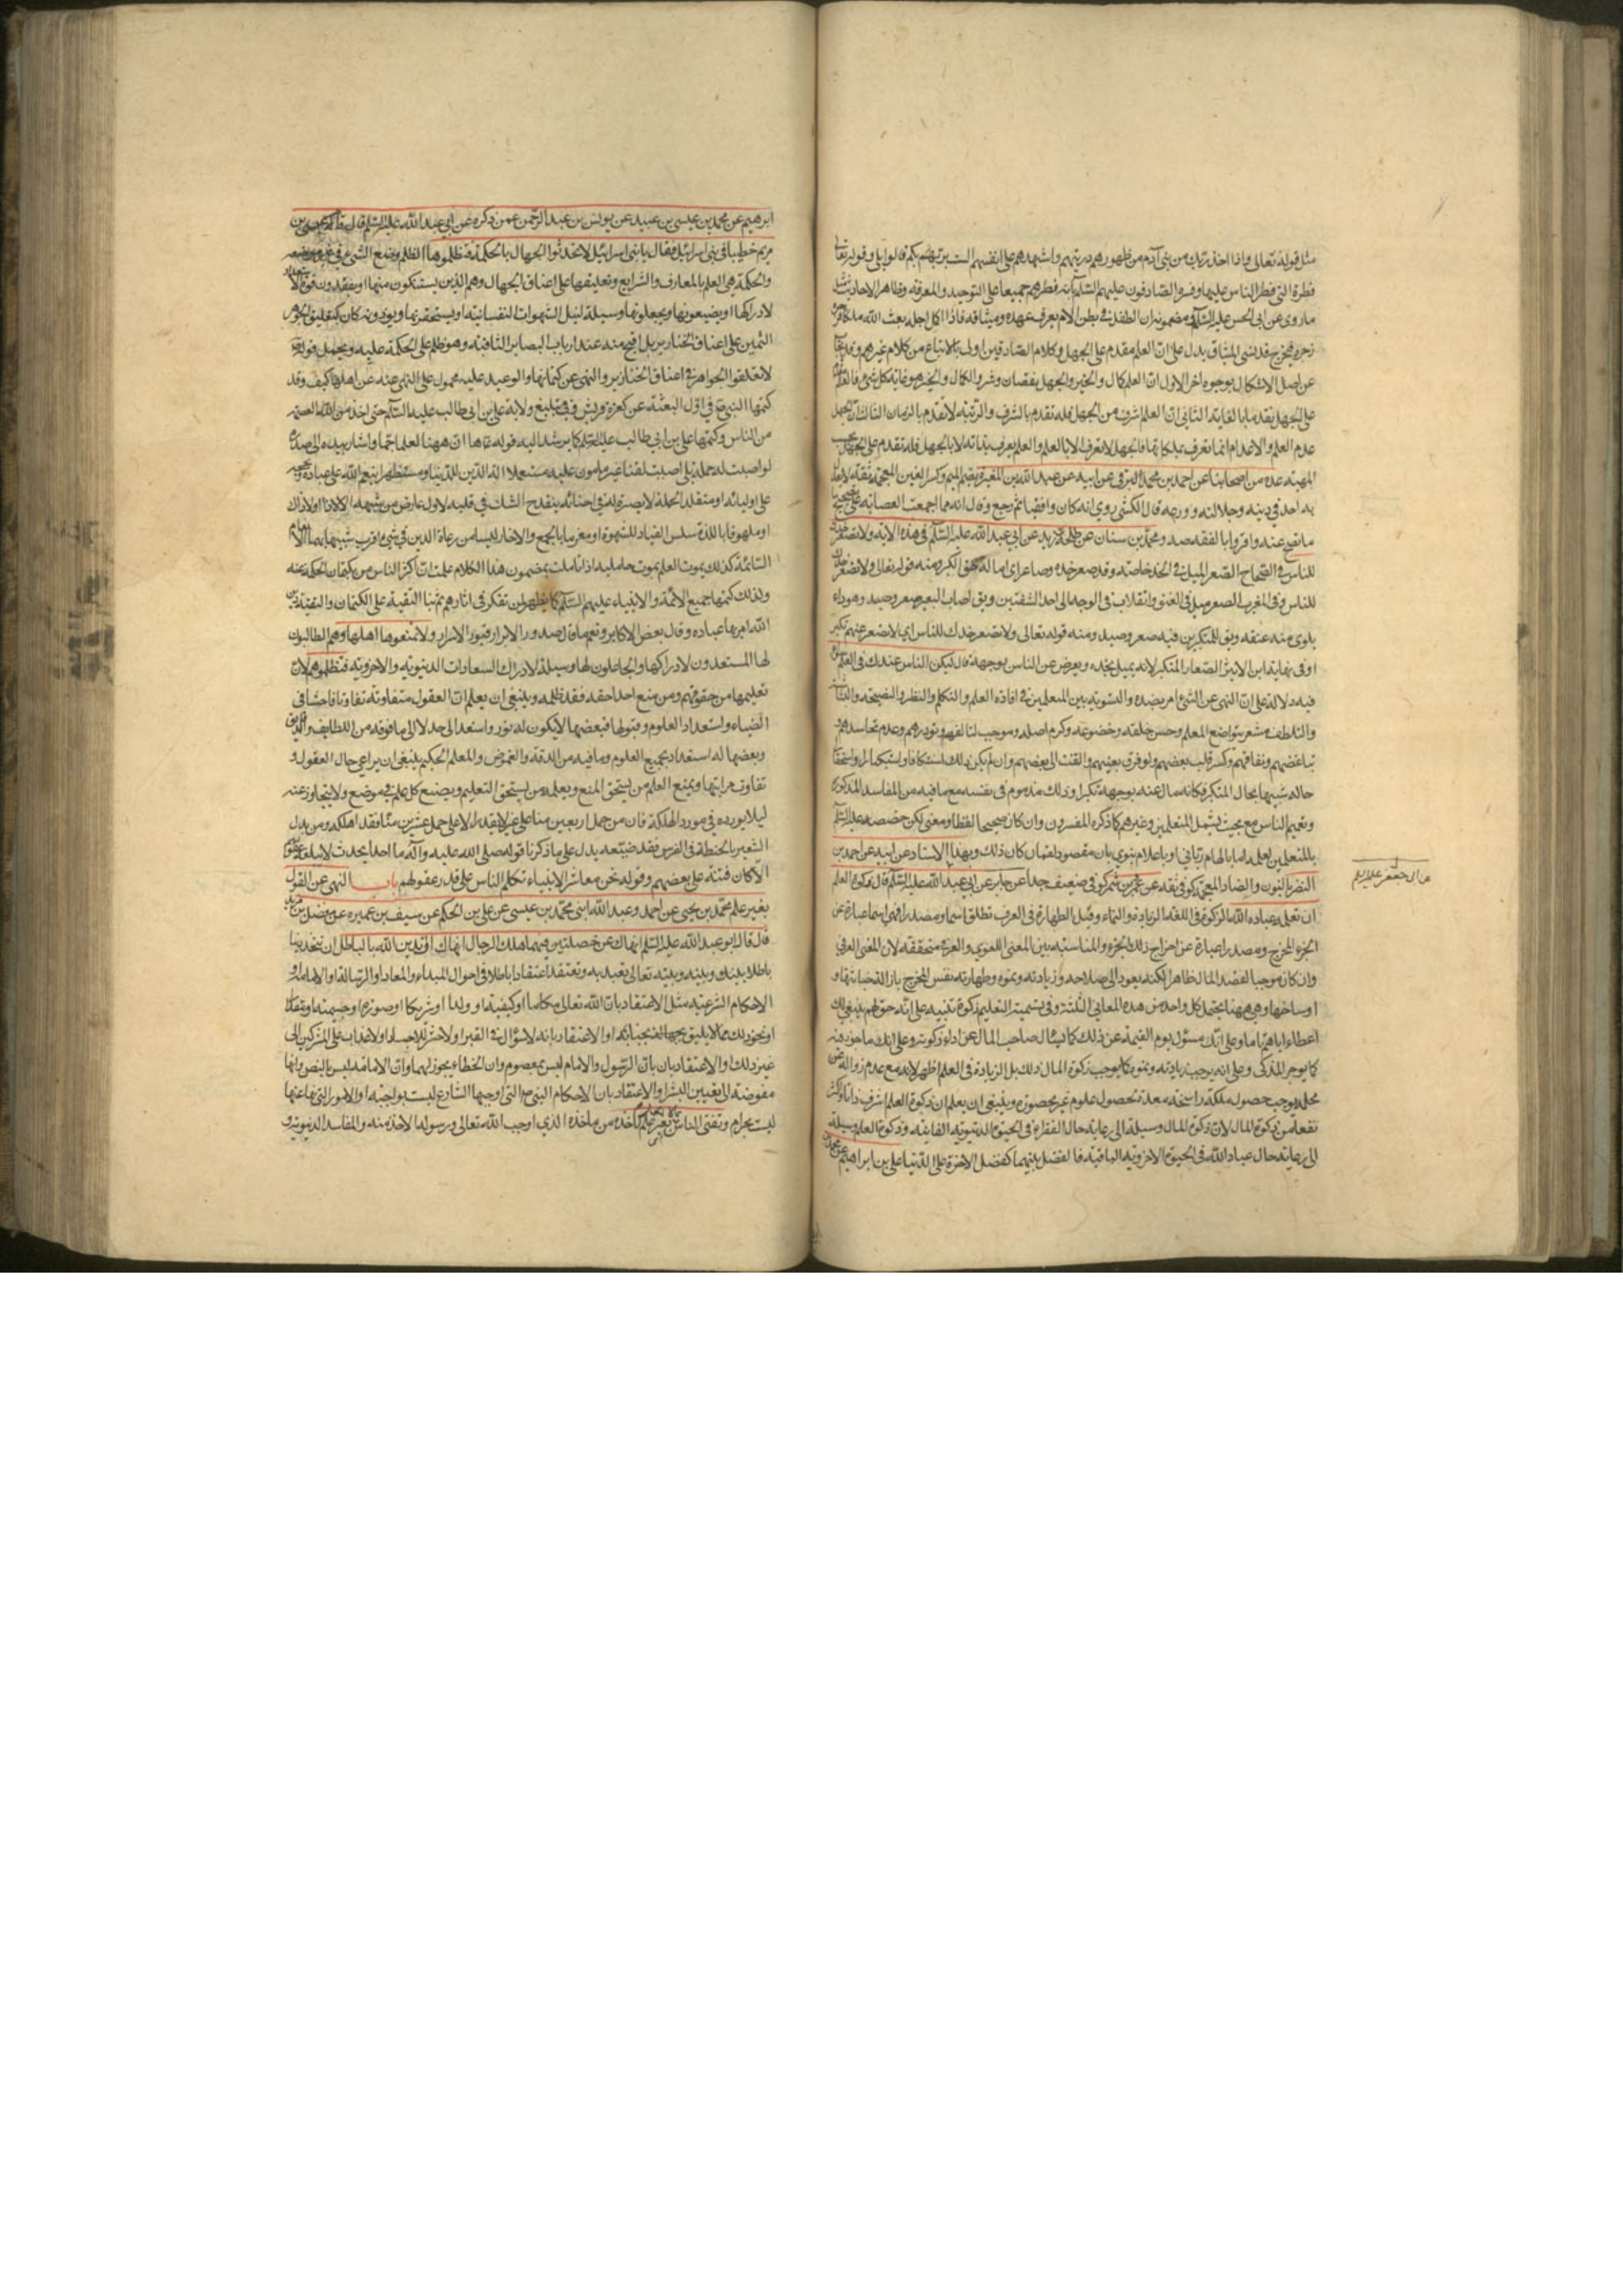 مثل قوله تعالى واذا اخذ ربك من بنى آدم من ظهورهم ذريتهم واشهدهم على انفسهم الست بربكم قالوا بلى وقوله تعالى
فطرة التى فطر الناس عليها وفسره الصادقون عليهم السلام بانه فطرهم جميعا على التوحيد والمعرفة وظاهر الاحاديث مثل
ماروى عن ابى الحسن عليه السلام مضمونه ان الطفل فى بطن الام يعرف عهده وميثاقه فاذا اكمل اجله بعث الله ملكا
زجره فيخرج وقد نسى الميثاق يدل على ان العلم مقدم على الجهل وكلام الصادقين اولى بالاتباع من كلام غيرهم
عن اصل الاشكال بوجوه اخر الاول ان العلم كمال والخير والجهل نقصان وشر والكمال والخير هو غاية كل شىء
على الجهل تقدما بالغاية الثانى ان العلم اشرف من الجهل فله تقدم بالشرف والرتبة لا تقدم بالزمان الثالث ان الجهل
عدم العلم والاعدام انما تعرف بملكاتها فالجهل لا تعرف الا بالعلم والعلم يعرف بذاته لا بالجهل فله تقدم على الجهل بحسب
المهية عدة من اصحابنا عن احمد بن محمد البرقى عن ابيه عن عبد الله بن المغيرة بضم الميم وكسر الغين المعجمة ثقة لا يعدل
به احد فى دينه وجلالته وورعه قال الكشى روى انه كان واقفيا ثم رجع وقال انه مما اجمعت العصابة على تصحيح
ما يصح عنه واقروا بالفقه صه ومحمد بن سنان عن طلحة بن زيد عن ابى عبد الله عليه السلام فى هذه الاية ولا تصعر خدك
للناس فى الصحاح الصعر الميل فى الخد خاصة وقد صعر خده وصاعر اى اماله من الكبر ومنه قوله تعالى ولا تصعر خدك
للناس وفى المغرب الصعر ميل فى العنق وانقلاب فى الوجه الى احد الشقين ويق اصاب البعير صعر وصيد وهو داء
يلوى منه عنقه ويق للمتكبر فيه صعر وصيد ومنه قوله تعالى ولا تصعر خدك للناس اى لا تعرض عنهم تكبرا
وفى نهاية ابن الاثير الصعار المتكبر لانه يميل بخده ويعرض عن الناس بوجهه قال ليكن الناس عندك فى العلم سواء
فيه دلالة على ان النهى عن الشىء امر بضده والتسوية بين المتعلمين فى افادة العلم والتكلم والنظر والنصيحة
والتلطف مشعر بتواضع المعلم وحسن خلقه وخضوعه وكرم اصله وموجب لتالفهم وتوددهم وعدم تحاسدهم
تباغضهم ونفاقهم وكسر قلب بعضهم ولو فرق بينهم والتفت الى بعضهم وان لم يكن ذلك استنكافا واستكبارا واستحقا
حاله شبيها بحال المتكبر فكانه مال عنه بوجهه تكبرا وذلك مذموم فى نفسه مع ما فيه من المفاسد المذكورة
وتعميم الناس مع بحيث يشمل المتعلمين وغيرهم كما ذكره المفسرون وان كان صحيحا لفظا ومعنى لكن خصصه عليه السلام
بالمتعلمين لعلمه اما بالهام ربانى او باعلام نبوى بان مقصود لقمان كان ذلك وبهذا الاسناد عن ابيه عن احمد بن
النضر بالنون والضاد المعجمة كوفى ثقة عن عمرو بن شمر كوفى ضعيف جدا عن جابر عن ابى عبد الله عليه السلام قال زكوة العلم
ان تعلمه عباد الله الزكوة فى اللغة الزيادة والنماء وقيل الطهارة فى العرف تطلق اسما ومصدرا فهى اسما عبارة عن
الجزء المخرج ومصدرا عبارة عن اخراج ذلك الجزء والمناسبة بين المعنى اللغوى والعرفى متحققة لان المعنى العرفى
وان كان موجبا لنقصد المال ظاهرا لكنه يعود الى صلاحه وزيادته ونموه وطهارته نفس المخرج بازالة خباثتها و
اوساخها وهى ههنا يحتمل كل واحد من هذه المعانى الثلثة وفى تسمية التعليم زكوة تنبيه على انه حق لهم ينبغى لك
اعطاءه اياهم تاما وعلى انك مسئول يوم القيمة عن ذلك كما يسال صاحب المال عن اداء زكوته وعلى انك ماجور به
كما يوجر المذكى وعلى انه يوجب زيادته ونموه كما يوجب زكوة المال ذلك بل الزيادة فى العلم اظهر لانه مع عدم زواله عن
محله يوجب حصول ملكة راسخة معدة لحصول علوم غير محصورة وينبغى ان يعلم ان زكوة العلم اشرف ذاتا واكثر
نفعا من زكوة المال لان زكوة المال وسيلة الى رعاية حال الفقراء فى الحيوة الدنيوية الفانية وزكوة العلم وسيلة
الى رعاية حال عباد الله فى الحيوة الاخروية الباقية فالفضل بينهما كفضل الاخرة على الدنيا على بن ابراهيم
عن ابى جعفر عليه السلم
ابرهيم عن محمد بن عيسى بن عبيد عن يونس بن عبد الرحمن عمن ذكره عن ابى عبد الله عليه السلم قال قام عيسى بن
مريم خطيبا فى بنى اسرائيل فقال يا بنى اسرائيل لا تحدثوا الجهال بالحكمة فتظلموها الظلم وضع الشىء فى غير موضعه
والحكمة هى العلم بالمعارف والشرايع وتعليقها على اعناق الجهال وهم الذين يستنكفون منها او يفقدون قوة
لادراكها او يضيعونها ويجعلونها وسيلة لنيل الشهوات النفسانية او يستحقرونها ويوذونه كان كتعليق الجوهر
الثمين على اعناق الخنازير بل اقبح منه عند ارباب البصاير الثاقبة وهو ظلم على الحكمة عليه ويحمل قوله
لا تعلقوا الجواهر فى اعناق الخنازير والنهى عن كتمانها والوعيد عليه محمول على النهى عنه عن اهلها كيف وقد
كتمها النبى ص فى اول البعثة عن كفرة قريش وفى تبليغ ولاية على بن ابى طالب عليه السلام حتى اخذ من الله العصمة
من الناس وكتمها على بن ابى طالب عليه السلم كما يرشد اليه قوله ها ان ههنا لعلما جما واشار بيده الى صدره
لو اصبت له حملة بلى اصبت لقنا غير مامون عليه مستعملا الة الدين للدنيا ومستظهرا بنعم الله على عباده وبحججه
على اوليائه او منقادا لحملة لا بصيرة له فى احنائه ينقدح الشك فى قلبه لاول عارض من شبهة الا لا ذا ولا ذاك
او منهوما باللذة سلس القياد للشهوة او مغرما بالجمع والادخار ليسا من رعاة الدين فى شىء اقرب شبها بهما الانعام
السائمة كذلك يموت العلم بموت حامليه اذا تاملت بمضمون هذا الكلام علمت ان اكثر الناس من يكتمان الحكمة عنه
ولذلك كتمها جميع الائمة والانبياء عليهم السلام كما يظهر لمن تفكر فى اثارهم ثم بنا التقية على الكتمان والتقية دين
الله امر بها عباده وقال بعض الاكابر ونعم ما قال صدور الابرار قبور الاسرار ولا تمنعوها اهلها وهم الطالبون
لها المستعدون لادراكها والجاعلون لها وسيلة لادراك السعادات الدنيوية والاخروية فتظلموهم لان
تعليمها من حقوقهم ومن منع احدا حقه فقد ظلمه وينبغى ان يعلم ان العقول متفاوتة تفاوتا فاحشا فى
الضياء واستعداد العلوم وقبولها فبعضها لا يكون له نور واستعداد اصلا لا الى ما فوقه من اللطايف والدقايق
وبعضها له استعداد بجميع العلوم وما فيه من الدقة والغموض والمعلم الحكيم ينبغى ان يراعى حال العقول و
تفاوت مراتبها ويمنع العلم من يستحق المنع ويعلمه من يستحق التعليم ويضع كل علم فى موضع ولا يتجاوز عنه
ليلا يورده فى مورد الهلكة فان من حمل اربعين منا على بعير لا يقدر الا على حمل عشرين منا فقد اهلكه ومن بدل
الشعير بالحنطة فى الفرس فقد ضيعه يدل على ما ذكرنا قوله صلى الله عليه وآله ما احد يحدث لا تبلغه عقولهم
الا كان فتنة على بعضهم وقوله نحن معاشر الانبياء نكلم الناس على قدر عقولهم باب النهى عن القول
بغير علم محمد بن يحيى عن احمد وعبد الله ابنى محمد بن عيسى عن على بن الحكم عن سيف بن عميرة عن مفضل بن يزيد
قال قال ابو عبد الله عليه السلم انهاك عن خصلتين فيهما هلك الرجال انهاك ان تدين الله بالباطل ان تتخذ دينا
باطلا بينك وبينه وبينه تعالى تعبد به وتعتقد اعتقادا باطلا فى احوال المبداء والمعاد او الرسالة او الامامة او
الاحكام الشرعية مثل الاعتقاد بان الله تعالى مكانا او كيفية او ولدا او شريكا او صورة او جسمية او مثلا
او نحو ذلك مما لا يليق بجناب قدسه او الاعتقاد بانه لا سؤال فى القبر او لا حشر للاجساد او لا عذاب على المشركين الى
غير ذلك او الاعتقاد بان الرسول والامام ليس بمعصوم وان الخطاء يجوز لهما وان الامامة ليس بالنص وانها
مفوضة الى تعيين البشر او الاعتقاد بان الاحكام التى اوجبها الشارع ليست بواجبة او الامور التى نهى عنها
ليست بحرام وتفتى الناس بغير علم ماخذه من ماخذه الذى اوجب الله تعالى ورسوله الاخذ منه والمفاسد الدنيوية و